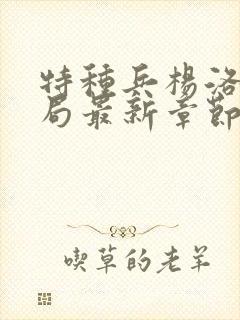 特種兵楊洛
局最新章節
喫草的老羊